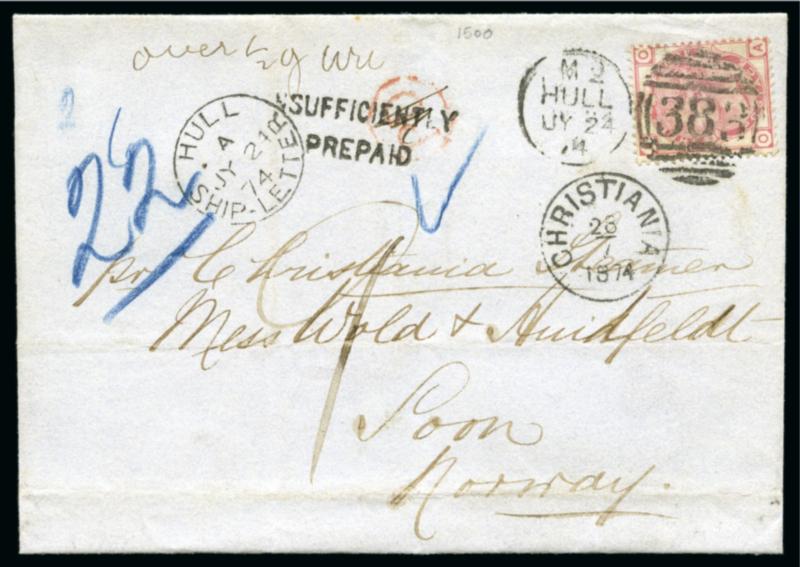 1500
over ½
HULL
A
JY 21
74
SHIP-LETTER
SUFFICIENTLY
PREPAID
M 2
HULL
JY 24
4
O A
383
O
2
22
CHRISTIANIA
1874
pr Christiania Steamer
Mess Wold & Huidfeldt
Soon
Norway.